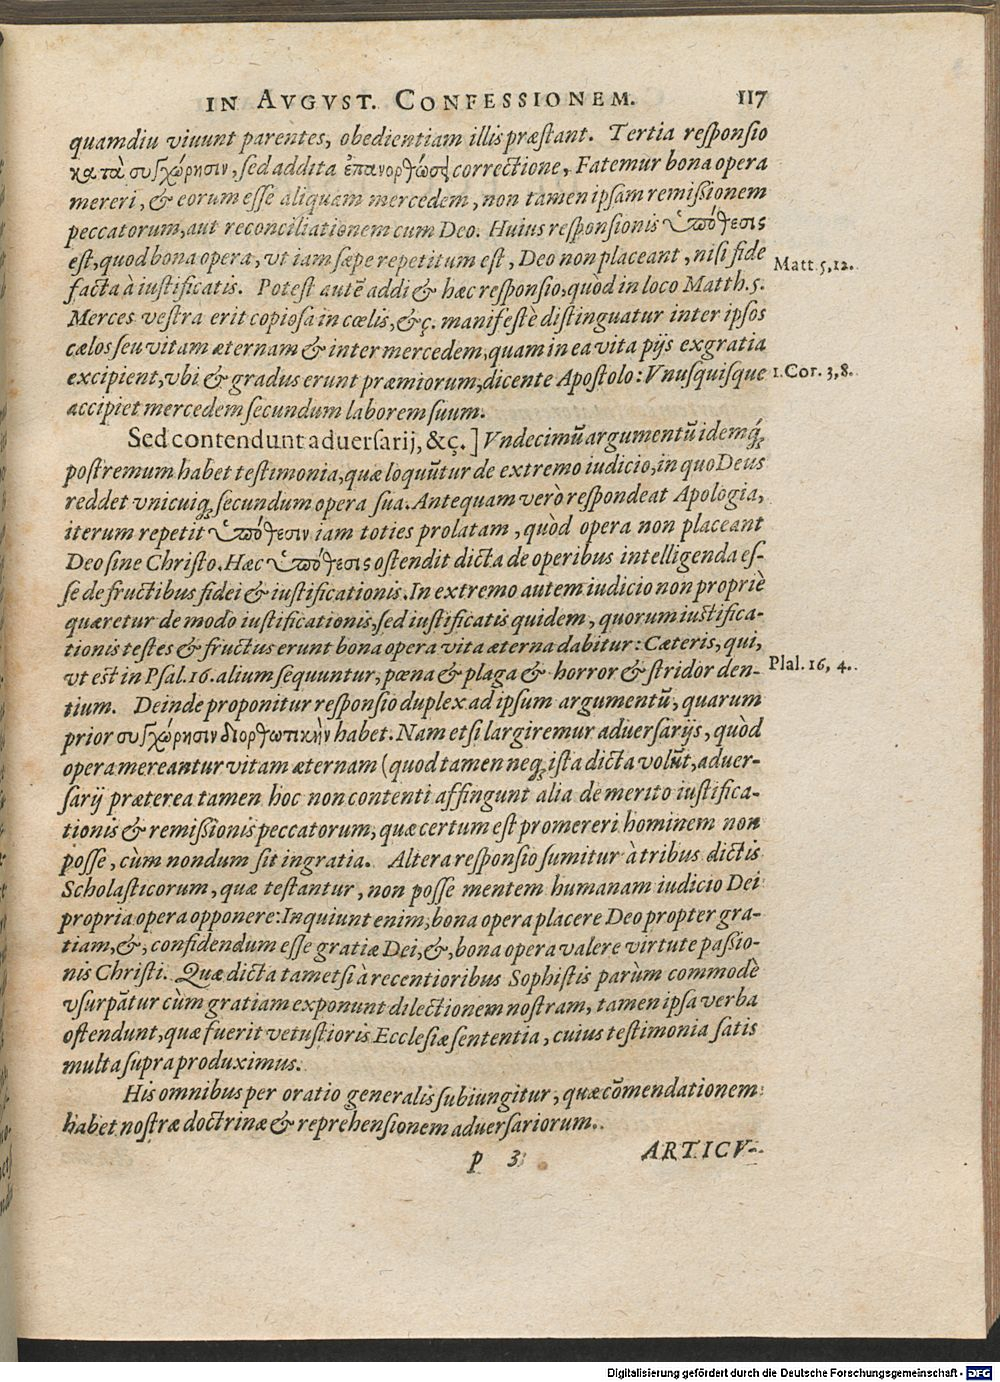 IN AVGVST. CONFESSIONEM. 117
quamdiu viuunt parentes, obedientiam illis præstant. Tertia responsio
κατὰ συγχώρησιν, sed addita ἐπανορθώσει correctione, Fatemur bona opera
mereri, & eorum esse aliquam mercedem, non tamen ipsam remissionem
peccatorum, aut reconciliationem cum Deo. Huius responsionis ὑπόθεσις
est, quod bona opera, vt iam sæpe repetitum est, Deo non placeant, nisi fide
Matt. 5, 12.
facta à iustificatis. Potest autē addi & hæc responsio, quòd in loco Matth. 5.
Merces vestra erit copiosa in cœlis, &ç. manifestè distinguatur inter ipsos
cælos seu vitam æternam & inter mercedem, quam in ea vita pijs ex gratia
excipient, vbi & gradus erunt præmiorum, dicente Apostolo: Vnusquisque
1. Cor. 3, 8.
accipiet mercedem secundum laborem suum.
Sed contendunt aduersarij, &ç. ] Vndecimū argumentū idemq́;
postremum habet testimonia, quæ loquūtur de extremo iudicio, in quo Deus
reddet vnicuiq; secundum opera sua. Antequam verò respondeat Apologia,
iterum repetit ὑπόθεσιν iam toties prolatam, quòd opera non placeant
Deo sine Christo. Hæc ὑπόθεσις ostendit dicta de operibus intelligenda es-
se de fructibus fidei & iustificationis. In extremo autem iudicio non propriè
quæretur de modo iustificationis, sed iustificatis quidem, quorum iustifica-
tionis testes & fructus erunt bona opera vita æterna dabitur: Cæteris, qui,
Psal. 16, 4.
vt est in Psal. 16. alium sequuntur, pœna & plaga & horror & stridor den-
tium. Deinde proponitur responsio duplex ad ipsum argumentū, quarum
prior συγχώρησιν διορθωτικὴν habet. Nam etsi largiremur aduersarijs, quòd
opera mereantur vitam æternam (quod tamen neq; ista dicta volūt, aduer-
sarij præterea tamen hoc non contenti affingunt alia de merito iustifica-
tionis & remissionis peccatorum, quæ certum est promereri hominem non
posse, cùm nondum sit in gratia. Altera responsio sumitur à tribus dictis
Scholasticorum, quæ testantur, non posse mentem humanam iudicio Dei
propria opera opponere: Inquiunt enim, bona opera placere Deo propter gra-
tiam, &, confidendum esse gratiæ Dei, &, bona opera valere virtute passio-
nis Christi. Quæ dicta tametsi à recentioribus Sophistis parùm commodè
vsurpātur cùm gratiam exponunt dilectionem nostram, tamen ipsa verba
ostendunt, quæ fuerit vetustioris Ecclesiæ sententia, cuius testimonia satis
multa supra produximus.
His omnibus per oratio generalis subiungitur, quæ cōmendationem
habet nostræ doctrinæ & reprehensionem aduersariorum.
p 3 ARTICV-
Digitalisierung gefördert durch die Deutsche Forschungsgemeinschaft - DFG